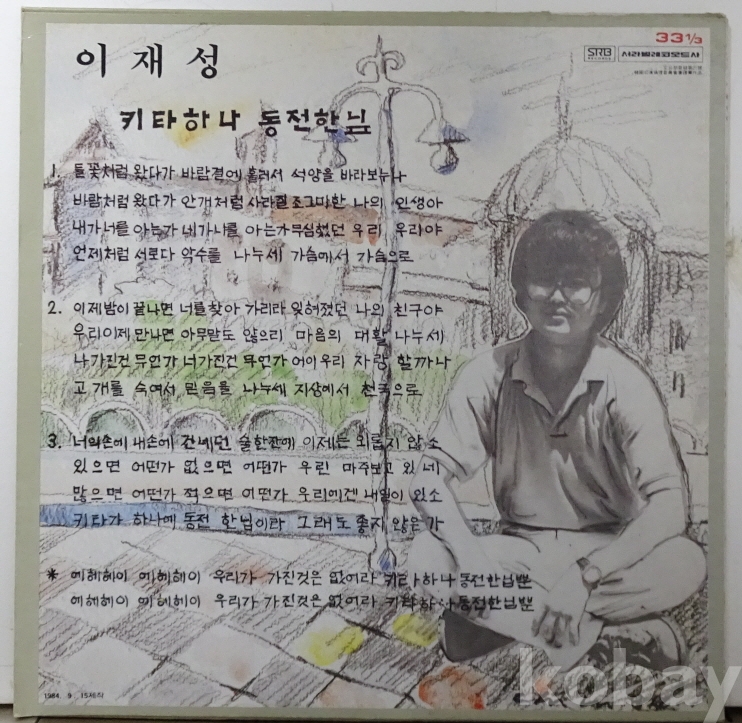 이재성
키타하나 동전한닢
33 1/3
SRB
RECORDS
사라벌레코드사
1. 들꽃처럼 왔다가 바람결에 흘러서 석양을 바라보누나
바람처럼 왔다가 안개처럼 사라질 조그마한 나의 인생아
내가 너를 아는가 네가 나를 아는가 무심했던 우리 우리야
언제처럼 서로다 악수를 나누세 가슴에서 가슴으로
2. 이제밤이 끝나면 너를 찾아 가리라 잊혀졌던 나의 친구야
우리이제 만나면 아무말도 않으리 마음의 대활 나누세
나가진건 무언가 너가진건 무언가 어이우리 자랑 할까나
고개를 숙여서 믿음을 나누세 지상에서 천국으로
3. 너의손에 내손에 건네던 술한잔에 이제는 외롭지 않소
있으면 어떤가 없으면 어떤가 우린 마주보고 있네
많으면 어떤가 적으면 어떤가 우리에겐 내일이 있소
키타가 하나에 동전 한닢이라 그래도 좋지 않은가
* 예헤헤이 예헤헤이 우리가 가진것은 없어라 키타하나 동전한닢뿐
예헤헤이 예헤헤이 우리가 가진것은 없어라 키타하나 동전한닢뿐
1984. 9. 15제작
kobay